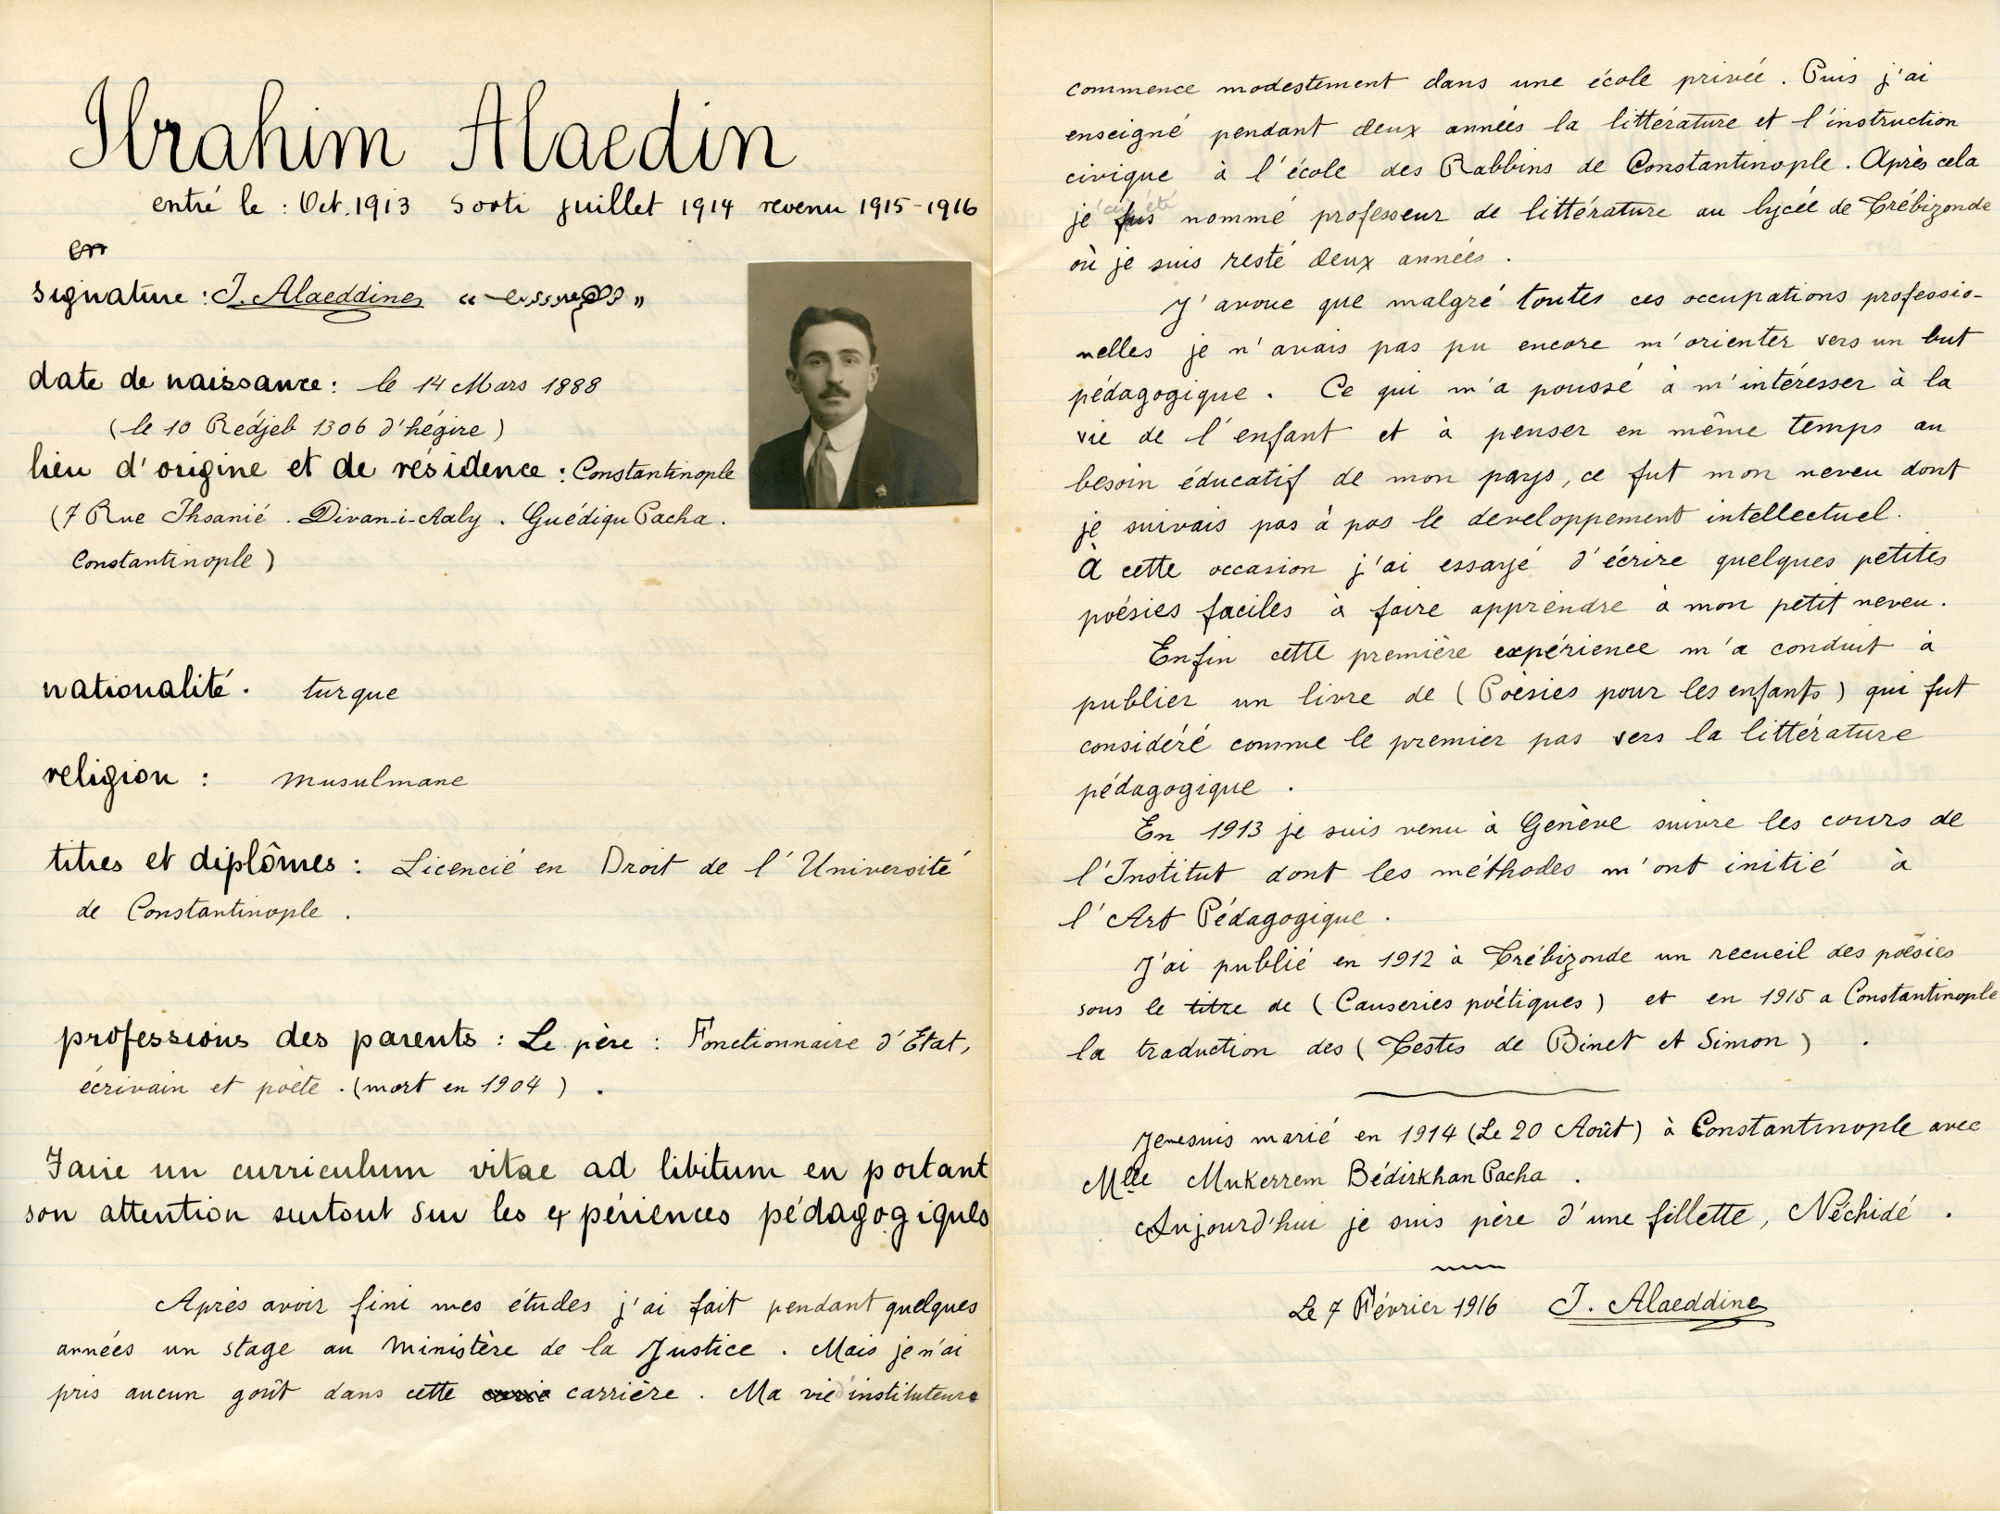 Ibrahim Alaedin
entré le : Oct. 1913 Sorti juillet 1914 revenu 1915-1916
en
signature : I. Alaeddine « »
date de naissance : le 14 Mars 1888
(le 10 Redjeb 1306 d'hégire)
lieu d'origine et de résidence : Constantinople
(7 Rue Ihsanié . Divan-i-Aaly . Guédiqu Pacha .
Constantinople)
nationalité . turque
religion : musulmane
titres et diplômes : Licencié en Droit de l'Université
de Constantinople .
professions des parents : Le père : Fonctionnaire d'Etat,
écrivain et poète . (mort en 1904) .
Faire un curriculum vitae ad libitum en portant
son attention surtout sur les expériences pédagogiques
Après avoir fini mes études j'ai fait pendant quelques
années un stage au Ministère de la Justice . Mais je n'ai
pris aucun goût dans cette carrière . Ma vie d'instituteur
commence modestement dans une école privée . Puis j'ai
enseigné pendant deux années la littérature et l'instruction
civique à l'école des Rabbins de Constantinople . Après cela
je fus nommé professeur de littérature au lycée de Trébizonde
où je suis resté deux années .
J'avoue que malgré toutes ces occupations professio-
nelles je n'avais pas pu encore m'orienter vers un but
pédagogique . Ce qui m'a poussé à m'intéresser à la
vie de l'enfant et à penser en même temps au
besoin éducatif de mon pays, ce fut mon neveu dont
je suivais pas à pas le developpement intellectuel .
À cette occasion j'ai essayé d'écrire quelques petites
poésies faciles à faire apprendre à mon petit neveu .
Enfin cette première expérience m'a conduit à
publier un livre de (Poèsies pour les enfants) qui fut
considéré comme le premier pas vers la littérature
pédagogique .
En 1913 je suis venu à Genève suivre les cours de
l'Institut dont les méthodes m'ont initié à
l'Art Pédagogique .
J'ai publié en 1912 à Trébizonde un recueil des poësies
sous le titre de (Causeries poétiques) et en 1915 a Constantinople
la traduction des (Testes de Binet et Simon) .
Je me suis marié en 1914 (Le 20 Août) à Constantinople avec
Mlle Mukerrem Bédirkhan Pacha .
Aujourd'hui je suis père d'une fillette, Néchidé .
Le 7 Février 1916 I. Alaeddine